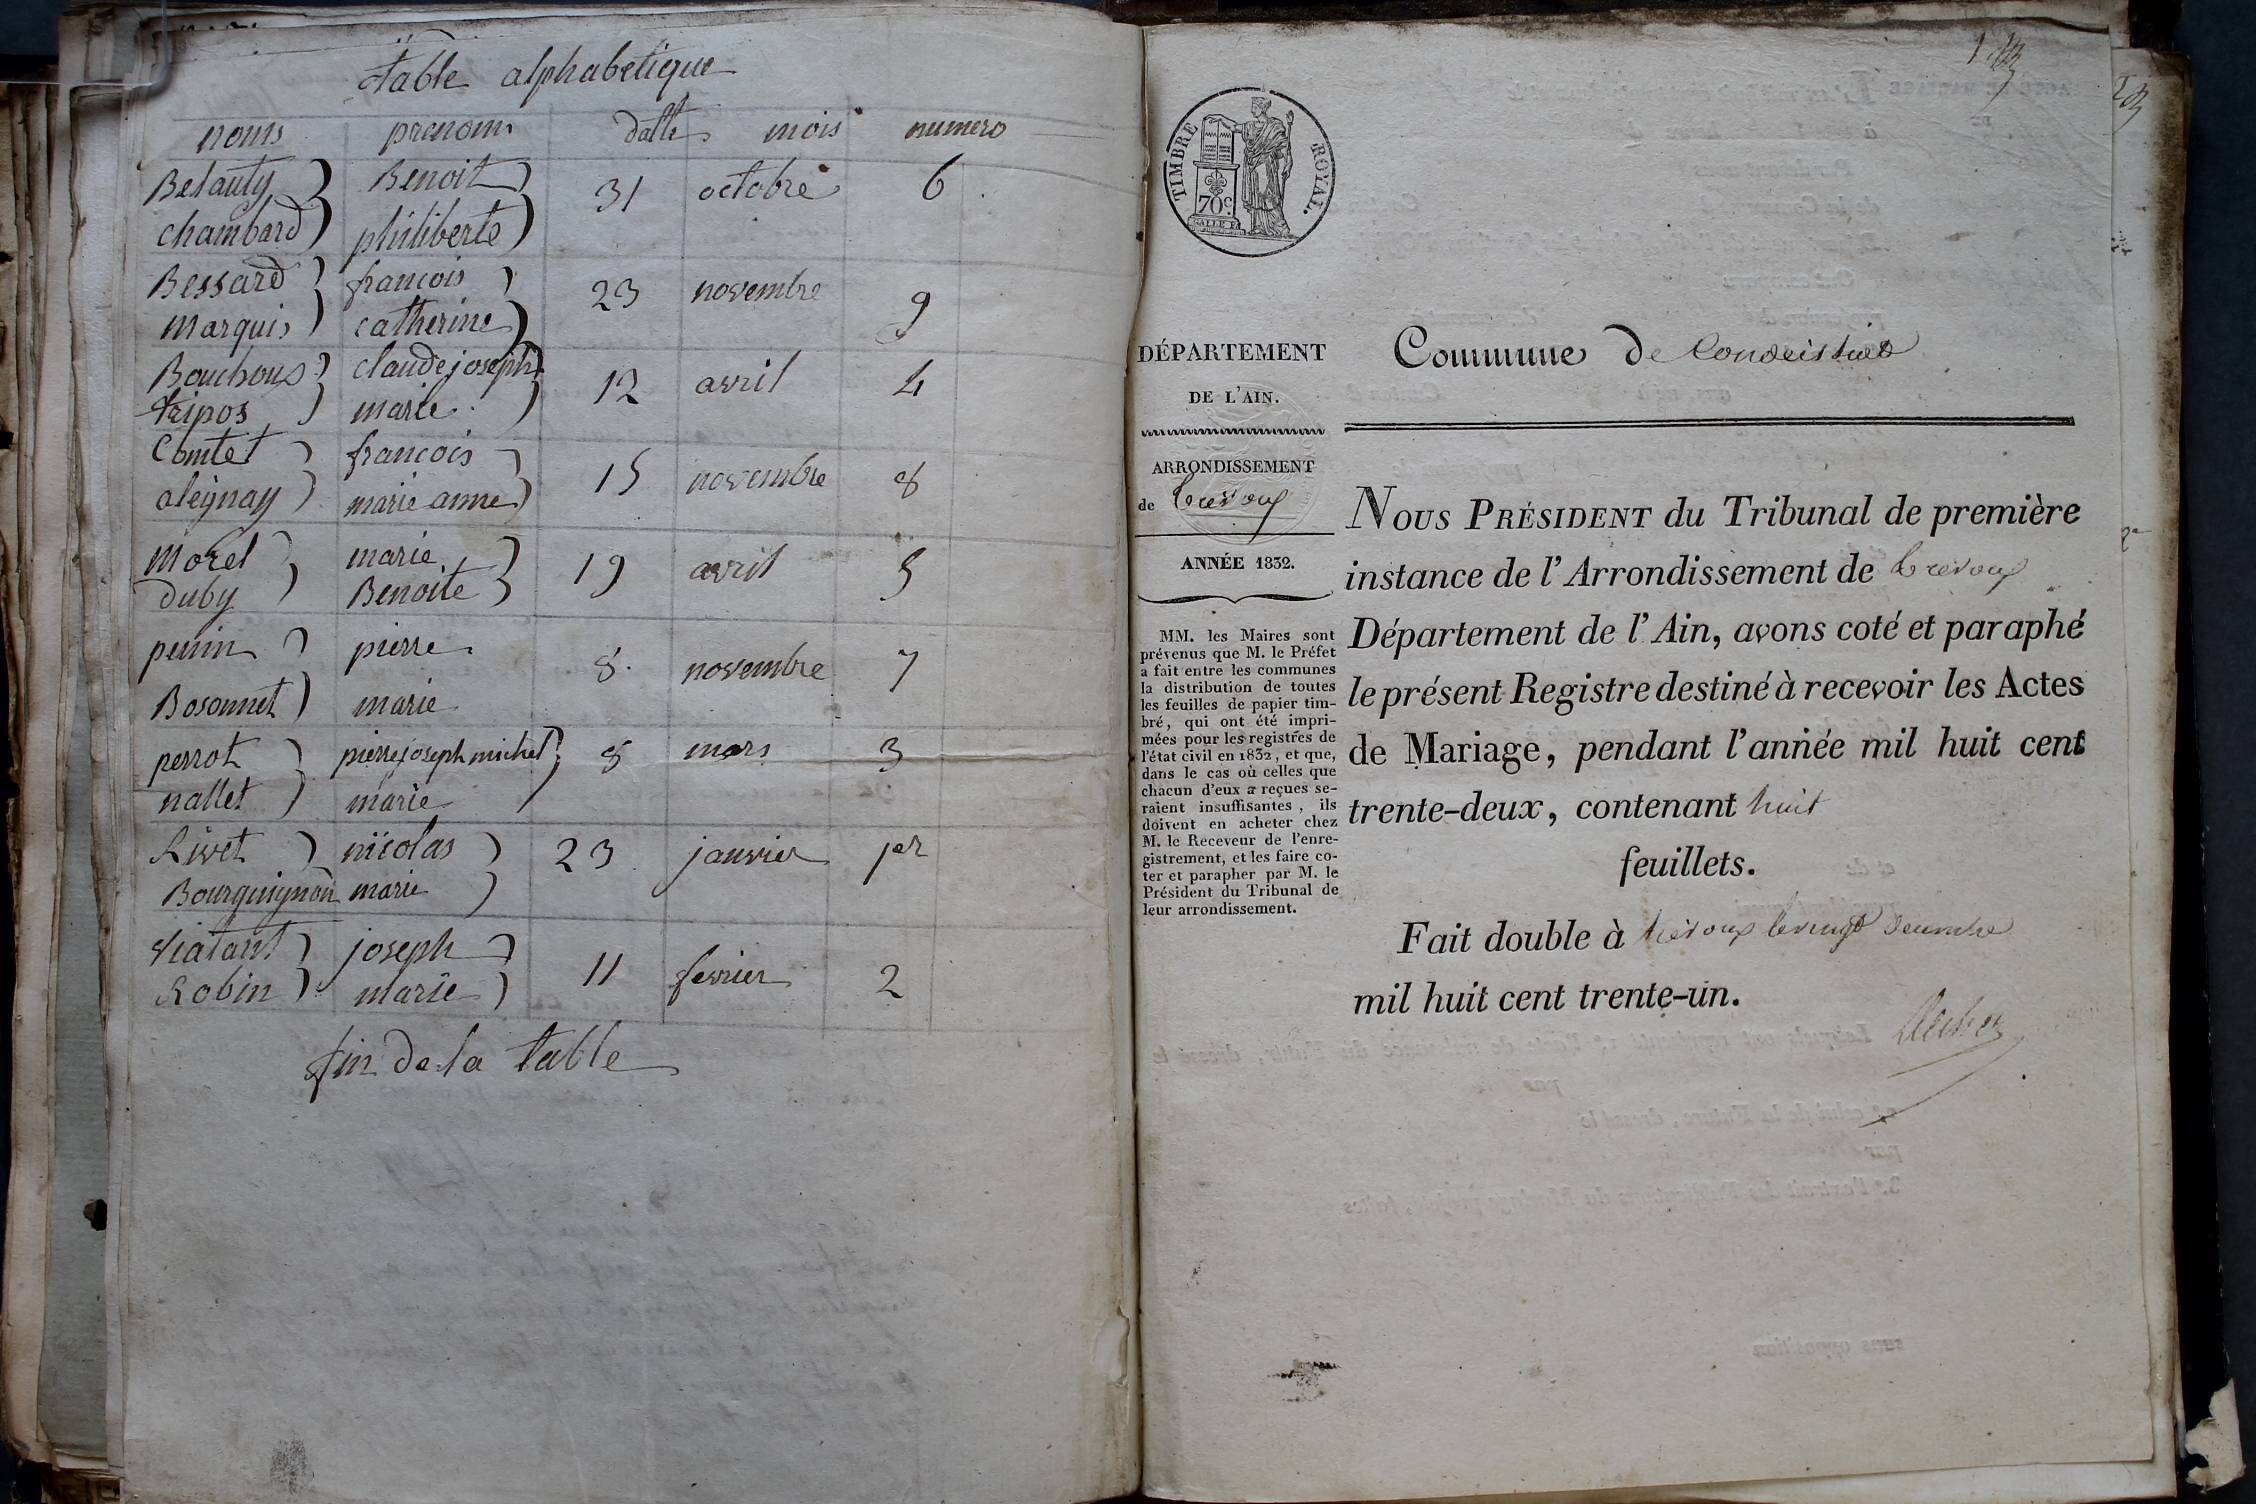 table alphabetique
noms prenoms datte mois numero
Belauty Benoit 31 octobre 6
chambard philiberte
Bessard francois 23 novembre 9
marquis catherine
Bouchoux claude joseph 12 avril 4
tripos marie
Comtet francois 15 novembre 8
aleynay marie anne
morel marie 19 avril 5
duby Benoite
penin pierre 8 novembre 7
Bosonnet marie
perrot pierre joseph michel 8 mars 3
nallet marie
Rivet nicolas 23 janvier 1er
Bourguignon marie
viatant joseph 11 fevrier 2
Robin marie
fin de la table
TIMBRE ROYAL.
70c.
DÉPARTEMENT
DE L'AIN.
ARRONDISSEMENT
de Trevoux
ANNÉE 1832.
MM. les Maires sont
prévenus que M. le Préfet
a fait entre les communes
la distribution de toutes
les feuilles de papier tim-
bré, qui ont été impri-
mées pour les registres de
l'état civil en 1832, et que,
dans le cas où celles que
chacun d'eux a reçues se-
raient insuffisantes, ils
doivent en acheter chez
M. le Receveur de l'enre-
gistrement, et les faire co-
ter et parapher par M. le
Président du Tribunal de
leur arrondissement.
Commune de Condeissiat
NOUS PRÉSIDENT du Tribunal de première
instance de l'Arrondissement de Trevoux
Département de l'Ain, avons coté et paraphé
le présent Registre destiné à recevoir les Actes
de Mariage, pendant l'année mil huit cent
trente-deux, contenant huit
feuillets.
Fait double à trevoux le vingt decembre
mil huit cent trente-un.